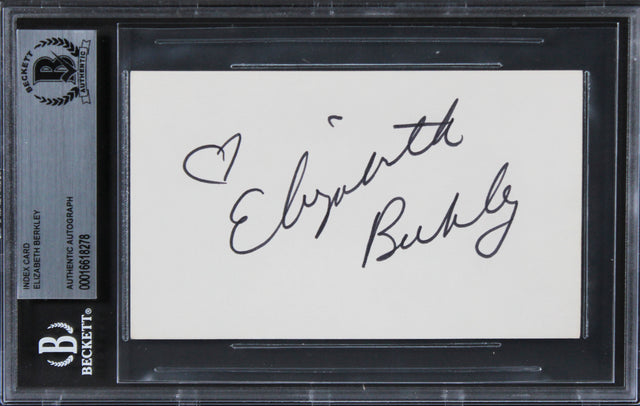 BECKETT
AUTHENTIC
INDEX CARD
ELIZABETH BERKLEY
AUTHENTIC AUTOGRAPH
00016618278
BECKETT®
Elizabeth
Berkley